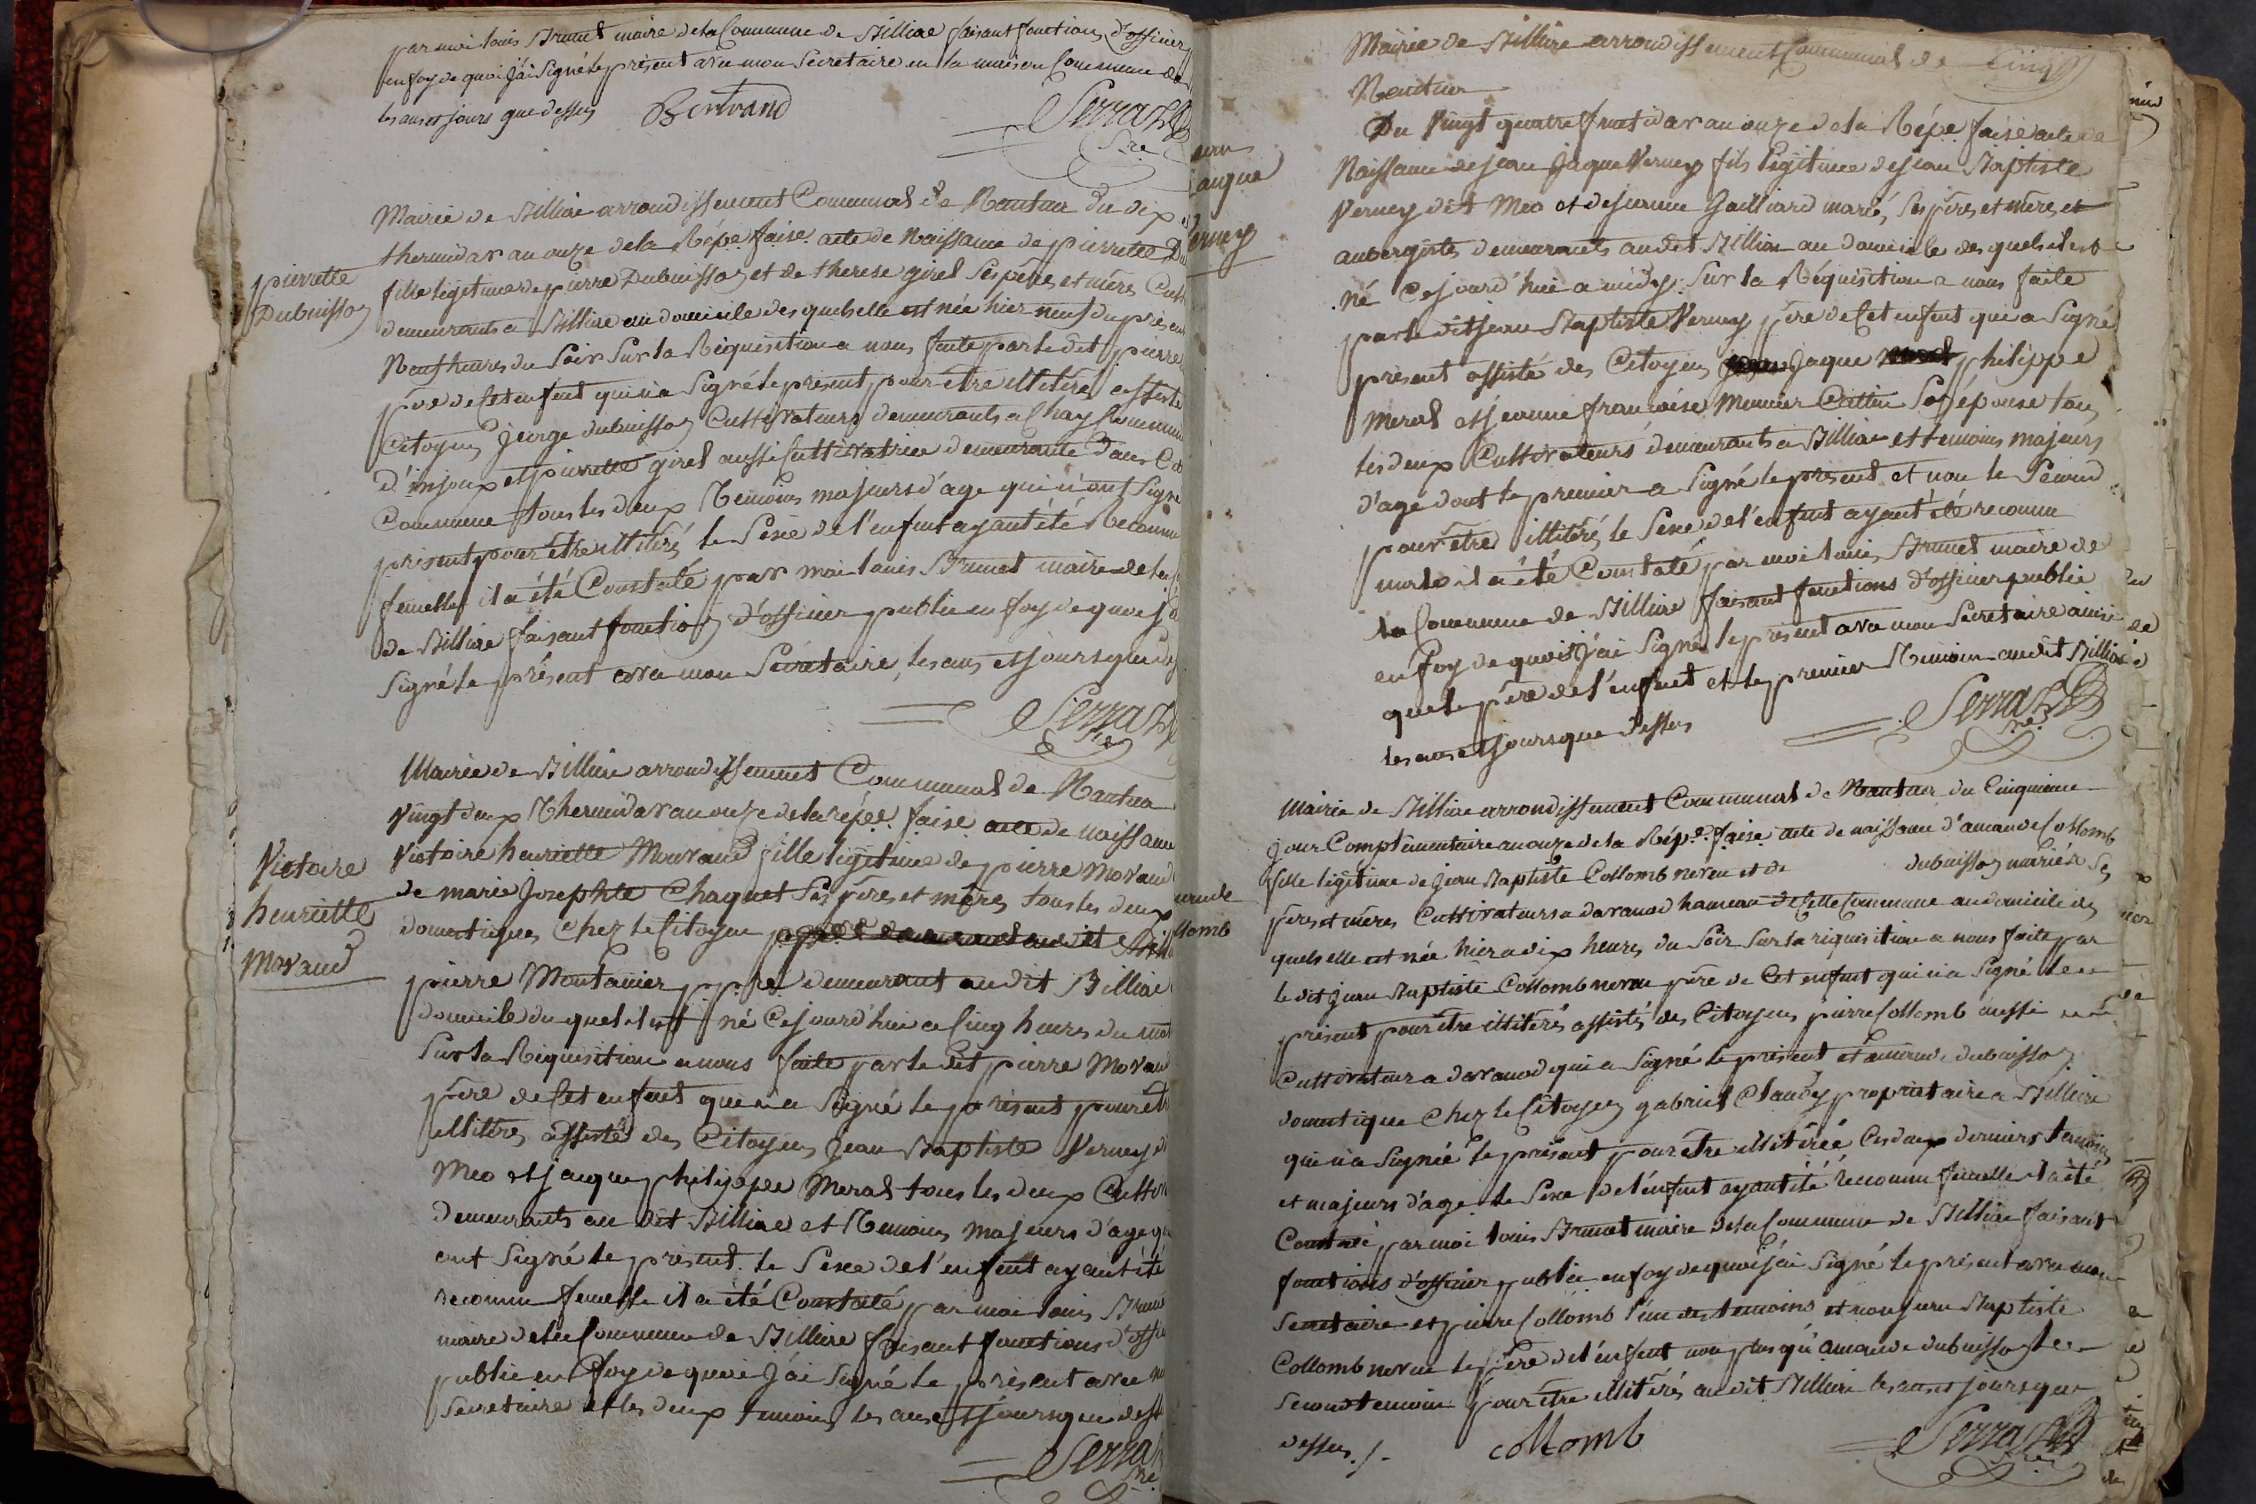 par moi louis Brunet maire de la Commune de Billiae faisant fonctions d'officier
en foy de quoi j'ai Signé le présent avec mon Secretaire en la maison Commune de
les ans et jours que dessus Bertrand
Serra
S.re
Mairie de Billiae arrondissement Communal de Nantua du dix
thermidor an onze de la Répe. faise. acte de Naissance de pierrette Du
pierrette
Dubuisson
fille legitime de pierre Dubuisson et de therese girel Ses père et mère Cult
demeurants a Billiae au domicile des quels elle est née hier neuf du présent
Neuf heures du Soir Sur la Réquisition a nous faite par le dit pierre
père de Cet enfent qui n'a Signé le présent pour être illitéré assisté
Citoyens george dubuisson Cultivateurs demeurants a Chay Commune
D'injoux et pierrette girel aussi Cultivatrice demeurante Dans Ce
Commune tous les deux Témoins majeurs d'age qui n'ont Signé
présent pour être illitéré le Sexe de l'enfent ayant été Reconnu
femelle il a été Constaté par moi louis Brunet maire de la C
de Billiae faisant fonctions d'officier public en foy de quoi j'ai
Signé le présent avec mon Secretaire, les ans et jours que de
Serra
S.re
Mairie de Billiae arrondissement Communal de Nantua
Vingt deux Thermidor an onze de la répe. faise. acte de naissance
Victoire
henriette
Moraud
Victoire henriette Mouraud fille legitime de pierre Moraud
de marie josephte Chaquet Ses père et mères tous les deux
domestiques Chez le Citoyen
pierre Montanier ppre. demeurant au dit Billiae
domicile du quel il est né Cejourd'hui a Cinq heures du mat
Sur la Réquisition a nous faite par le dit pierre Moraud
père de Cet enfent que n'a Signé le présent pour êtr
illitéré assisté des Citoyens Jean Baptiste Verney d
Meo et jaques philippe Meral tous les deux Cultiv
Demeurants au dit Billiae et Témoins majeurs d'age qu
ont Signé le présent. le Sexe de l'enfent ayant été
reconnu femelle il a été Constaté par moi louis Brune
maire de la Commune de Billiae faisant fonctions d'offi
public en foy de quoi j'ai Signé le présent avec m
Secretaire et les deux temoins les ans et jours que dess
Serra
S.re
jaque
Verney
Mairie de Billiae arrondissement Communal de
Nantua
Du Vingt quatre fructidor an onze de la Répe. faise. acte de
Naissance de jean Jaque Verney fils legitime de jean Baptiste
Verney dit Meo et de jeanne Gailliard mariés, Ses père et mère, et
aubergiste demeurants au dit Billiae au domicile des quels il est
né Cejourd'hui a midy: Sur la Réquisition a nous faite
par le dit jean Baptiste Verney père de Cet enfent que a Signé
présent assisté des Citoyens Jaque philippe
Meral et jeanne françoise Monnier Cattin Son épouse tous
les deux Cultivateurs demeurants a Billiae et temoins majeurs
d'age dont le premier a Signé le présent et non le Second
pour être illitéré, le Sexe de l'enfent ayant été reconnu
male il a été Constaté par moi louis Brunet maire de
la Commune de Billiae faisant fonctions d'officier public
en foy de quoi j'ai Signé le présent avec mon Secretaire ainsi
que le père de l'enfent et le premier Témoin au dit Billiae
les ans et jours que dessus
Serra
S.re
Mairie de Billiae arrondissement Communal de Nantua du Cinquieme
jour Complémentaire an onze de la Répe. faise. acte de naissance d'amande Collomb
fille légitime de jean Baptiste Collomb neveu et de dubuisson mariés Ses
père et mères Cultivateurs a davanod hameau de Cette Commune au domicile des
quels elle est née hier a dix heures du Soir Sur la réquisition a nous faite par
le dit jean Baptiste Collomb neveu père de Cet enfent qui n'a Signé le
présent pour être illitéré assistés des Citoyens pierre Collomb aussi
Cultivateur a davanod qui a Signé le présent et amande dubuisson
domestique Chez le Citoyen gabriel Claudy proprietaire a Billiae
qui n'a Signé le présent pour être illitérée Ces deux derniers temoins
et majeurs d'age le Sexe de l'enfent ayant été reconnu femelle il a été
Constaté par moi louis Brunet maire de la Commune de Billiae faisant
fonctions d'officier public en foy de quoi j'ai Signé le présent avec mon
Secretaire et pierre Collomb l'un des temoins et non jean Baptiste
Collomb neveu le père de l'enfent non plus qu'amande dubuisson le
Second temoin pour être illitérés au dit Billiae les ans et jours que
dessus./. Collomb
Serra
S.re